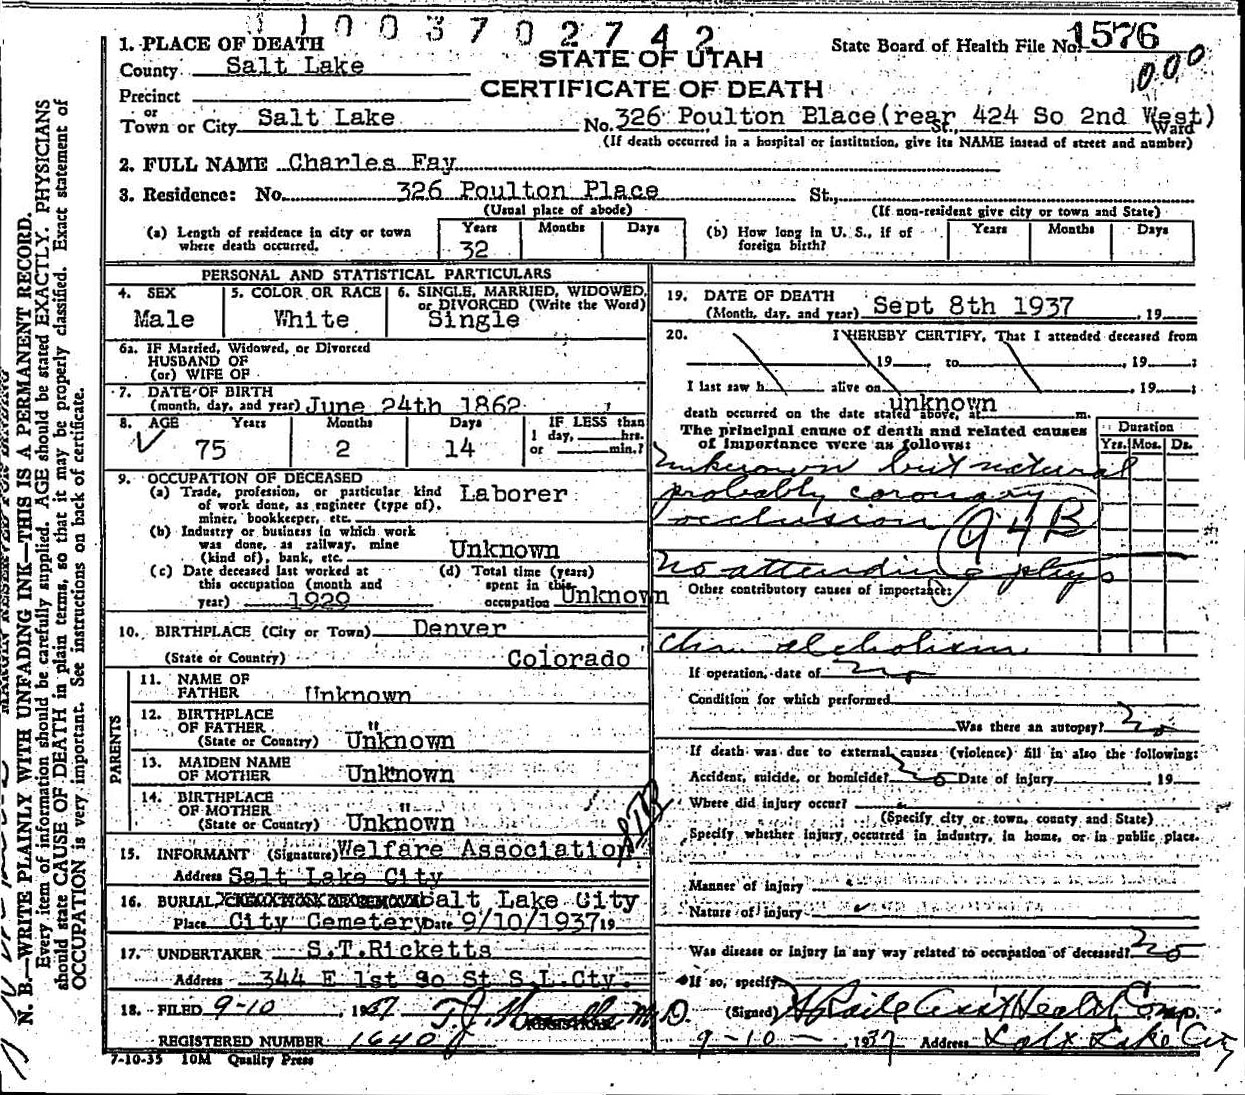 1 1 0 0 3 7 0 2 7 4 2
1. PLACE OF DEATH
County Salt Lake
Precinct
or
Town or City Salt Lake
STATE OF UTAH
CERTIFICATE OF DEATH
State Board of Health File No. 1576
000
No. 326 Poulton Elace (rear 424 So 2nd West) St., Ward
(If death occurred in a hospital or institution, give its NAME instead of street and number)
2. FULL NAME Charles Fay
3. Residence: No. 326 Poulton Place St.,
(Usual place of abode) (If non-resident give city or town and State)
(a) Length of residence in city or town where death occurred. Years 32 Months Days
(b) How long in U. S., if of foreign birth? Years Months Days
PERSONAL AND STATISTICAL PARTICULARS
4. SEX Male
5. COLOR OR RACE White
6. SINGLE, MARRIED, WIDOWED, or DIVORCED (Write the Word) Single
6a. IF Married, Widowed, or Divorced
HUSBAND OF
(or) WIFE OF
7. DATE OF BIRTH
(month, day, and year) June 24th 1862
8. AGE Years 75 Months 2 Days 14 IF LESS than 1 day, hrs. or min.?
9. OCCUPATION OF DECEASED
(a) Trade, profession, or particular kind of work done, as engineer (type of), miner, bookkeeper, etc. Laborer
(b) Industry or business in which work was done, as railway, mine (kind of), bank, etc. Unknown
(c) Date deceased last worked at this occupation (month and year) 1929
(d) Total time (years) spent in this occupation Unknown
10. BIRTHPLACE (City or Town) Denver
(State or Country) Colorado
PARENTS
11. NAME OF FATHER Unknown
12. BIRTHPLACE OF FATHER "
(State or Country) Unknown
13. MAIDEN NAME OF MOTHER Unknown
14. BIRTHPLACE OF MOTHER "
(State or Country) Unknown
15. INFORMANT (Signature) Welfare Association
Address Salt Lake City
16. BURIAL, Salt Lake City
Place City Cemetery Date 9/10/1937 19
17. UNDERTAKER S.T.Ricketts
Address 344 E 1st So St S.L.Cty.
18. FILED 9-10 1937 T. J. M.D.
REGISTRAR
REGISTERED NUMBER 1640
7-10-35 10M Quality Press
19. DATE OF DEATH
(Month, day, and year) Sept 8th 1937, 19
20. I HEREBY CERTIFY, That I attended deceased from
, 19 , to , 19 ;
I last saw h alive on , 19 ;
death occurred on the date stated above, at unknown m.
The principal cause of death and related causes of importance were as follows:
Duration
Yrs. Mos. Ds.
Unknown but natural
probably coronary
occlusion 94B
No attending phys
Other contributory causes of importance:
Chr. alcoholism
If operation, date of no
Condition for which performed
Was there an autopsy? no
If death was due to external causes (violence) fill in also the following:
Accident, suicide, or homicide? no Date of injury , 19
Where did injury occur?
(Specify city or town, county and State)
Specify whether injury occurred in industry, in home, or in public place.
Manner of injury
Nature of injury
Was disease or injury in any way related to occupation of deceased? no
If so, specify
(Signed) Asst Health Comp.
9-10-, 1937 Address Salt Lake City
N. B.—WRITE PLAINLY WITH UNFADING INK—THIS IS A PERMANENT RECORD.
Every item of information should be carefully supplied. AGE should be stated EXACTLY. PHYSICIANS
should state CAUSE OF DEATH in plain terms, so that it may be properly classified. Exact statement of
OCCUPATION is very important. See instructions on back of certificate.